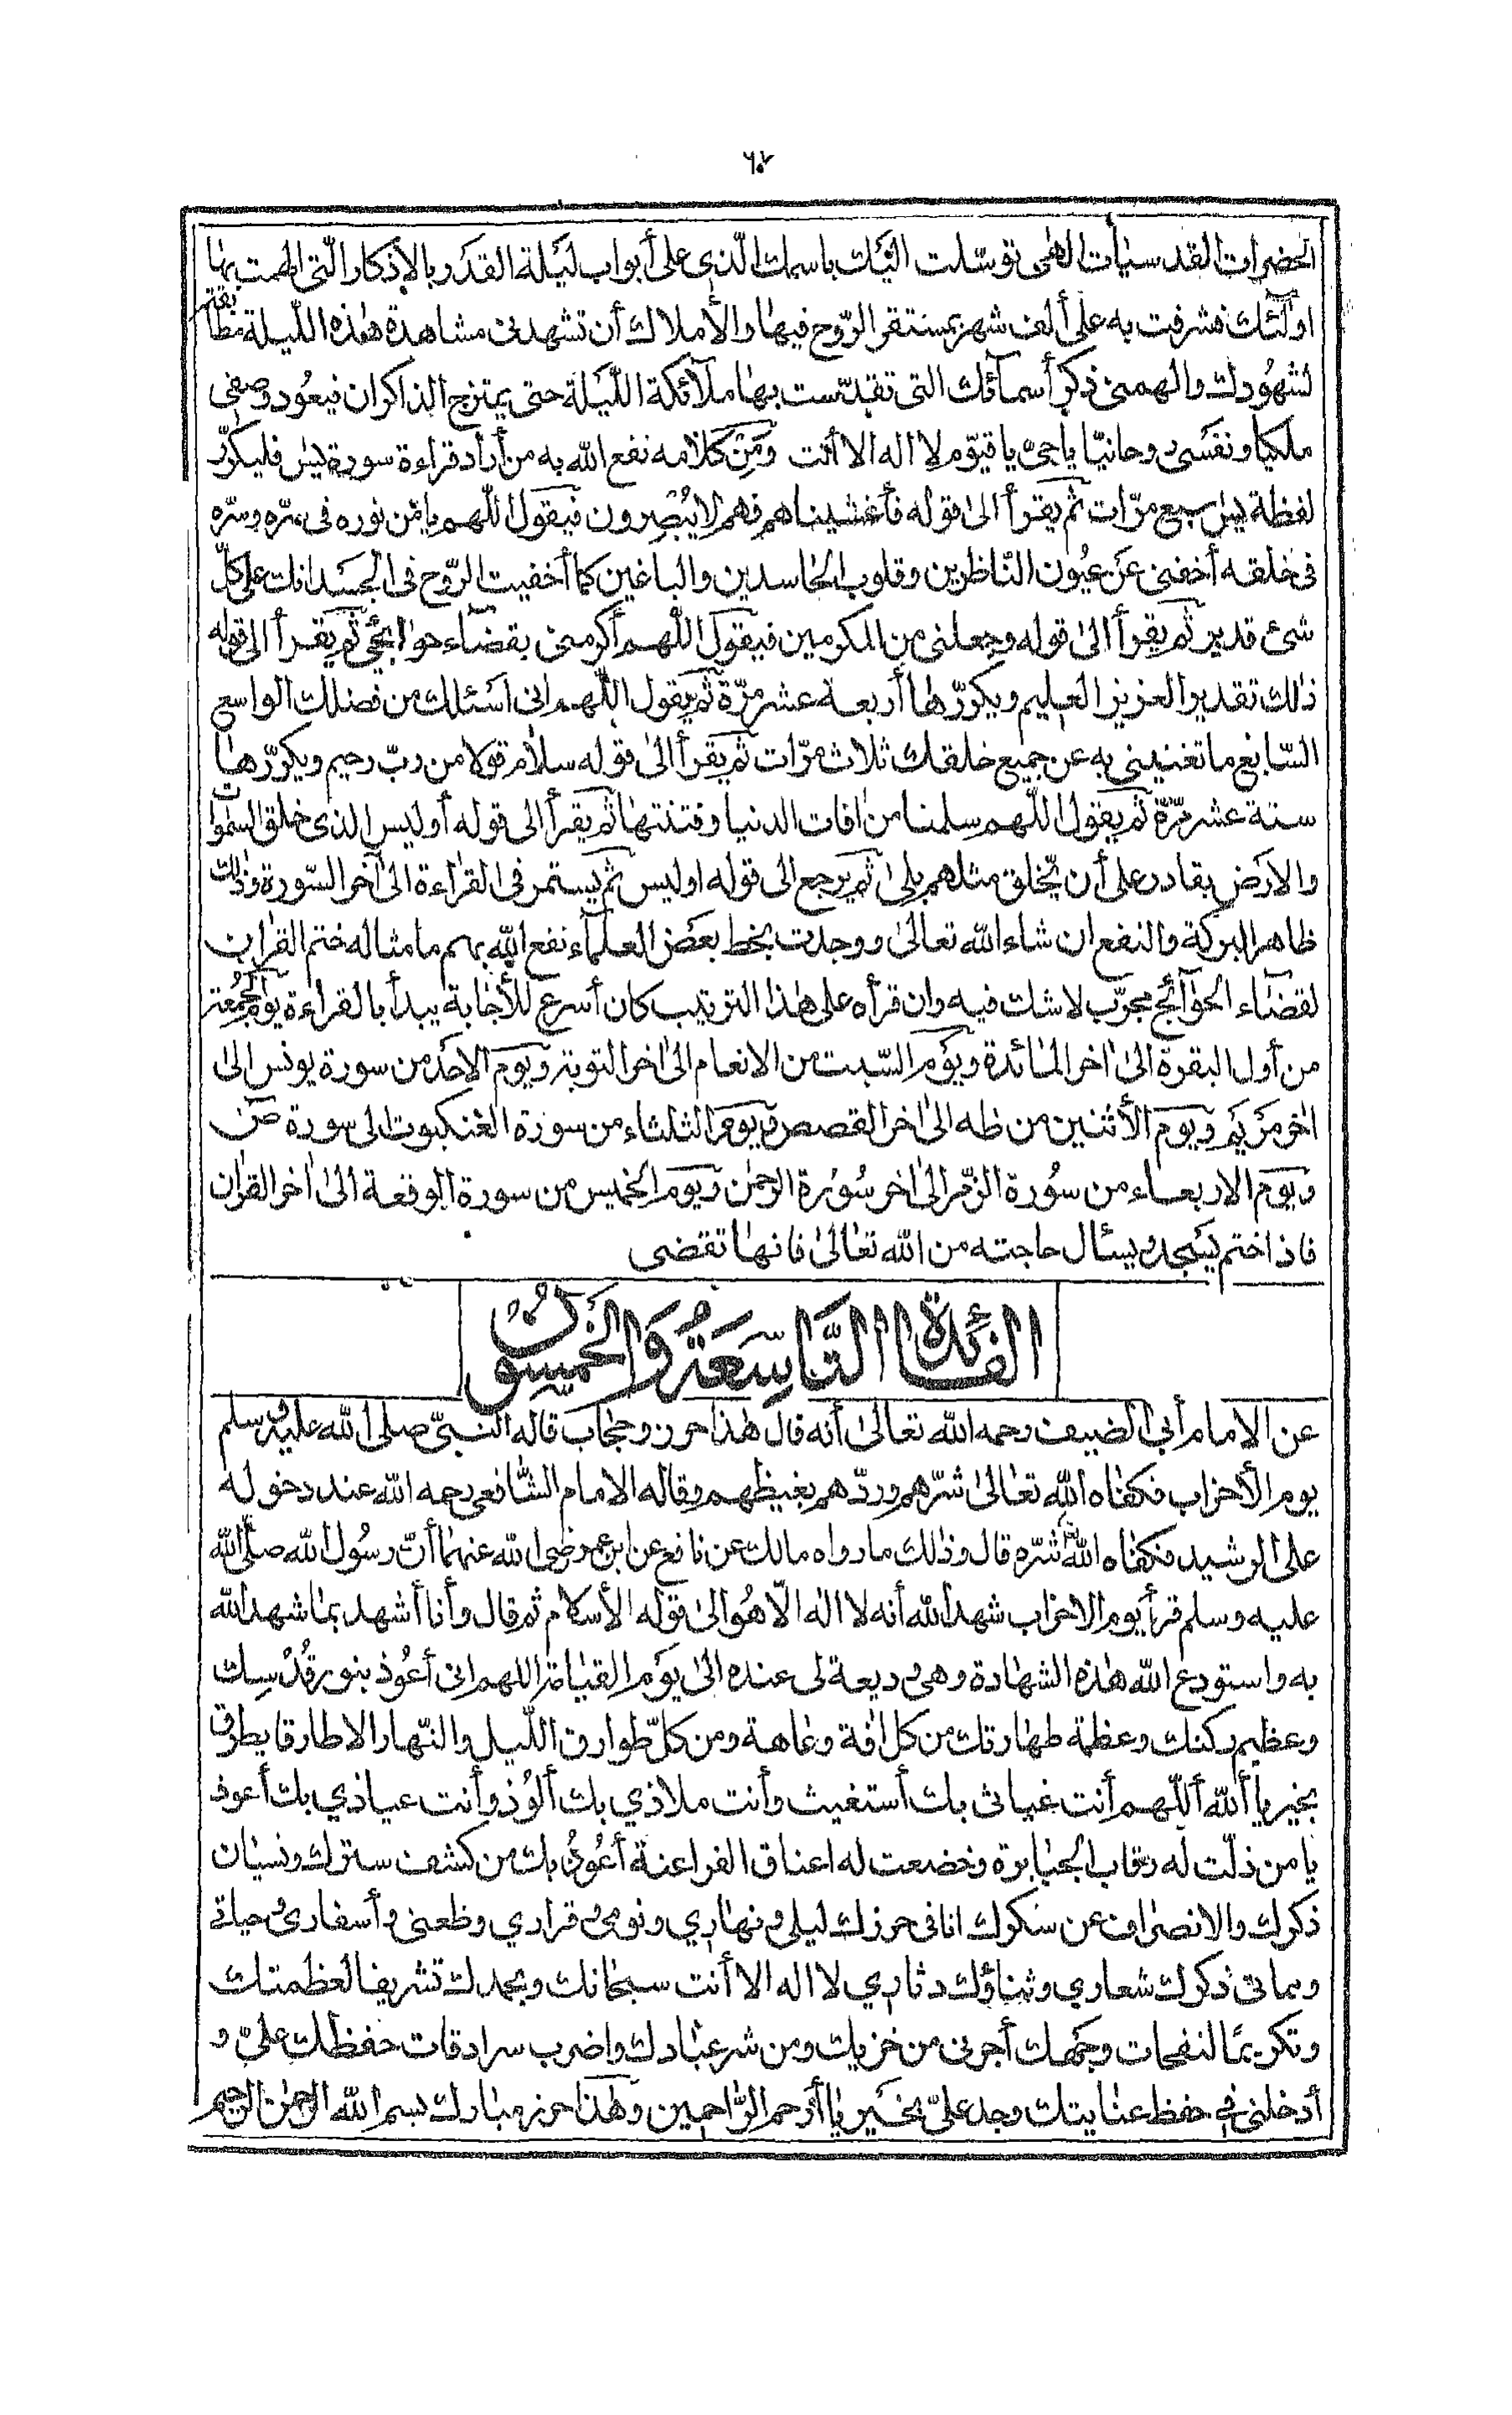 الحضرات القدسيات الهى توسلت اليك باسمك الذى على أبواب ليلة القدر بالاذكار التى الهمت بها
اولئك فشرفت به على ألف شهر بمستقر الروح فيها والأملاك أن تشهدنى مشاهدة هٰذه الليلة مطابقة
لشهودك والهمنى ذكر أسمآئك التى تقدست بها ملآئكة الليلة حتى يمتزج الذاكران فيعود وصفى
ملكيا ونفسى روحانيا ياحى يا قيوم لا اله الا أنت ومن كلامه نفع الله به من أراد قراءة سورة يس فليكرر
لفظة يس سبع مرات ثم يقرأ الى قوله فأغشيناهم فهم لا يبصرون فيقول اللهم يا من نوره فى سره وسره
فى خلقه أخفنى عن عيون الناظرين وقلوب الحاسدين والباغين كما أخفيت الروح فى الجسد انك على كل
شئ قدير ثم يقرأ الى قوله وجعلنى من المكرمين فيقول اللهم أكرمنى بقضاء حوآئجى ثم يقرأ الى قوله
ذلك تقدير العزيز العليم ويكررها أربعة عشر مرة ثم يقول اللهم انى اسئلك من فضلك الواسع
السابغ ما تغنينى به عن جميع خلقك ثلاث مرات ثم يقرأ الى قوله سلام قولا من رب رحيم ويكررها
ستة عشر مرة ثم يقول اللهم سلمنا من افات الدنيا وفتنتها ثم يقرأ الى قوله أوليس الذى خلق السموات
والارض بقادر على أن يخلق مثلهم بلى ثم يرجع الى قوله اوليس ثم يستمر فى القراءة الى آخر السورة وذلك
ظاهر البركة والنفع ان شاء الله تعالى ووجدت بخط بعض العلمآء نفع الله بهم ما مثاله ختم القرآن
لقضاء الحوآئج مجرب لا شك فيه وان قرأه على هذا الترتيب كان أسرع للأجابة يبدأ بالقراءة يوم الجمعة
من أول البقرة الى اخر المائدة ويوم السبت من الانعام الى اخر التوبة ويوم الاحد من سورة يونس الى
اخر مريم ويوم الأثنين من طه الى اخر القصص ويوم الثلثاء من سورة العنكبوت الى سورة ص
ويوم الاربعاء من سورة الزمر الى اخر سورة الرحمن ويوم الخميس من سورة الوقعة الى اخر القرآن
فاذا ختم يسجد ويسئال حاجته من الله تعالى فانها تقضى
الفائدة التاسعة والخمسون
عن الامام أبى الضيف رحمه الله تعالى أنه قال هذا حرز وحجاب قاله النبى صلى الله عليه وسلم
يوم الأحزاب فكفاه الله تعالى شرهم وردهم بغيظهم وقاله الامام الشافعى رحمه الله عند دخوله
على الرشيد فكفاه الله شره قال وذلك ما رواه مالك عن نافع عن ابن عمر رضى الله عنهما أن رسول الله صلى الله
عليه وسلم قرأ يوم الاحزاب شهد الله أنه لا اله الا هو الى قوله الأسلام ثم قال وأنا أشهد بما شهد الله
به واستودع الله هذه الشهادة وهى وديعة لى عنده الى يوم القيامة اللهم انى أعوذ بنور قدسك
وعظيم ركنك وعظمة طهارتك من كل افة وعاهة ومن كل طوارق الليل والنهار الا طارقا يطرق
بخير يا ألله أللهم أنت غياثى بك أستغيث وأنت ملاذي بك ألوذ وأنت عياذي بك أعوذ
يا من ذلت له رقاب الجبابرة وخضعت له اعناق الفراعنة أعوذ بك من كشف سترك ونسيان
ذكرك والانصراف عن شكرك انا فى حرزك ليلى ونهاري ونومى وقراري وظعنى وأسفارى وحياتى
ومماتى ذكرك شعاري وثناؤك دثاري لا اله الا أنت سبحانك وبحمدك تشريفا لعظمتك
وتكريما لنفحات وجهك أجرنى من خزيك ومن شر عبادك واضرب سرادقات حفظك علي و
أدخلنى فى حفظ عنايتك وجد علي بخير يا أرحم الراحمين وهذا حرز مبارك بسم الله الرحمن الرحيم